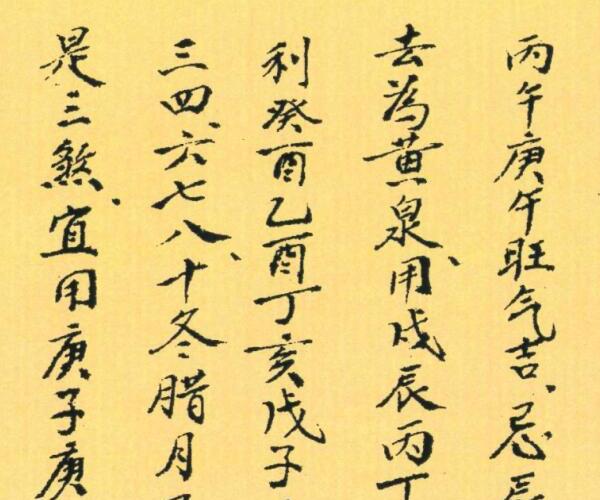 丙午庚午旺气吉、忌辰
去为黄泉、用戊辰丙丁
利癸酉乙酉丁亥戊子
三四、六七八、十冬腊月
是三煞、宜用庚子庚